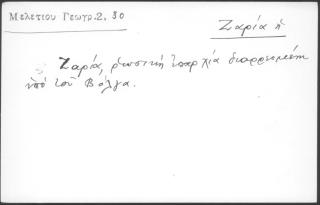 Μελετίου Γεωγρ.2, 30
Ζαρία ἡ
Ζαρία, ρωσική ἐπαρχία διαρρεομένη
ὑπό τοῦ Βόλγα.